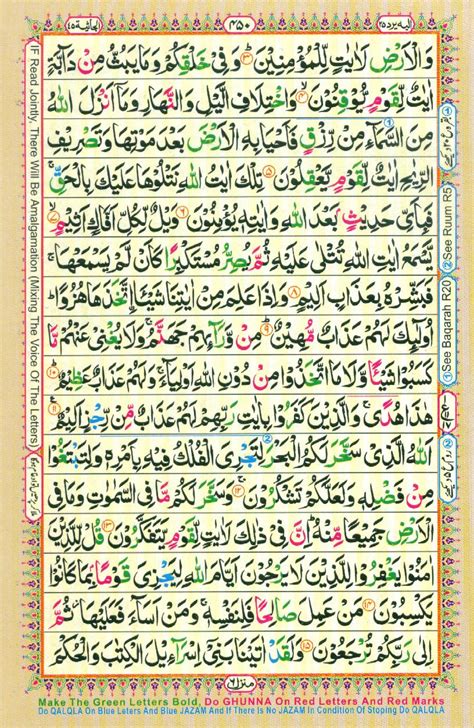 الجاثية ٤٥
٤٥٠
اليه يرد ٢٥
وَالْاَرْضِ لَاٰيٰتٍ لِّلْمُؤْمِنِيْنَ ۝۳ وَفِيْ خَلْقِكُمْ وَمَا يَبُثُّ مِنْ دَآبَّةٍ
اٰيٰتٌ لِّقَوْمٍ يُّوْقِنُوْنَ ۝۴ وَاخْتِلَافِ الَّيْلِ وَالنَّهَارِ وَمَآ اَنْزَلَ اللّٰهُ
مِنَ السَّمَآءِ مِنْ رِّزْقٍ فَاَحْيَا بِهِ الْاَرْضَ بَعْدَ مَوْتِهَا وَتَصْرِيْفِ
الرِّيٰحِ اٰيٰتٌ لِّقَوْمٍ يَّعْقِلُوْنَ ۝۵ تِلْكَ اٰيٰتُ اللّٰهِ نَتْلُوْهَا عَلَيْكَ بِالْحَقِّ
فَبِاَيِّ حَدِيْثٍۭ بَعْدَ اللّٰهِ وَاٰيٰتِهٖ يُؤْمِنُوْنَ ۝۶ وَيْلٌ لِّكُلِّ اَفَّاكٍ اَثِيْمٍ ۝۷
يَّسْمَعُ اٰيٰتِ اللّٰهِ تُتْلٰى عَلَيْهِ ثُمَّ يُصِرُّ مُسْتَكْبِرًا كَاَنْ لَّمْ يَسْمَعْهَا
فَبَشِّرْهُ بِعَذَابٍ اَلِيْمٍ ۝۸ وَاِذَا عَلِمَ مِنْ اٰيٰتِنَا شَيْـًٔا اتَّخَذَهَا هُزُوًا
اُولٰٓئِكَ لَهُمْ عَذَابٌ مُّهِيْنٌ ۝۹ مِنْ وَّرَآئِهِمْ جَهَنَّمُ وَلَا يُغْنِيْ عَنْهُمْ مَّا
كَسَبُوْا شَيْـًٔا وَّلَا مَا اتَّخَذُوْا مِنْ دُوْنِ اللّٰهِ اَوْلِيَآءَ وَلَهُمْ عَذَابٌ عَظِيْمٌ ۝۱۰
هٰذَا هُدًى وَالَّذِيْنَ كَفَرُوْا بِاٰيٰتِ رَبِّهِمْ لَهُمْ عَذَابٌ مِّنْ رِّجْزٍ اَلِيْمٌ ۝۱۱
اَللّٰهُ الَّذِيْ سَخَّرَ لَكُمُ الْبَحْرَ لِتَجْرِيَ الْفُلْكُ فِيْهِ بِاَمْرِهٖ وَلِتَبْتَغُوْا
مِنْ فَضْلِهٖ وَلَعَلَّكُمْ تَشْكُرُوْنَ ۝۱۲ وَسَخَّرَ لَكُمْ مَّا فِي السَّمٰوٰتِ وَمَا فِي
الْاَرْضِ جَمِيْعًا مِّنْهُ اِنَّ فِيْ ذٰلِكَ لَاٰيٰتٍ لِّقَوْمٍ يَّتَفَكَّرُوْنَ ۝۱۳ قُلْ لِّلَّذِيْنَ
اٰمَنُوْا يَغْفِرُوْا لِلَّذِيْنَ لَا يَرْجُوْنَ اَيَّامَ اللّٰهِ لِيَجْزِيَ قَوْمًۢا بِمَا كَانُوْا
يَكْسِبُوْنَ ۝۱۴ مَنْ عَمِلَ صَالِحًا فَلِنَفْسِهٖ وَمَنْ اَسَآءَ فَعَلَيْهَا ثُمَّ
اِلٰى رَبِّكُمْ تُرْجَعُوْنَ ۝۱۵ وَلَقَدْ اٰتَيْنَا بَنِيْٓ اِسْرَآءِيْلَ الْكِتٰبَ وَالْحُكْمَ
منزل ٦
IF Read Jointly, There Will Be Amalgamation (Mixing The Voice Of The Letters)
① See Baqarah R20 ② See Ruum R5
Make The Green Letters Bold, Do GHUNNA On Red Letters And Red Marks
Do QALQLA On Blue Leters And Blue JAZAM And If There Is No JAZAM In Condition Of Stoping Do QALQLA